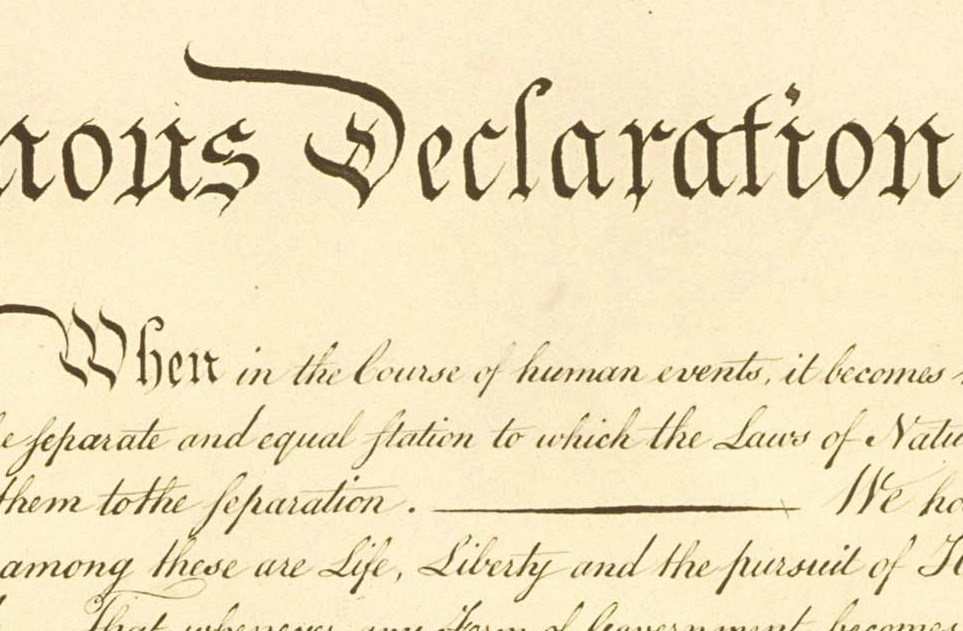 nous Declaration
When in the Course of human events, it becomes
e separate and equal station to which the Laws of Natu
them to the separation. We ho
among these are Life, Liberty and the pursuit of H
That whenever any Form of Government becomes